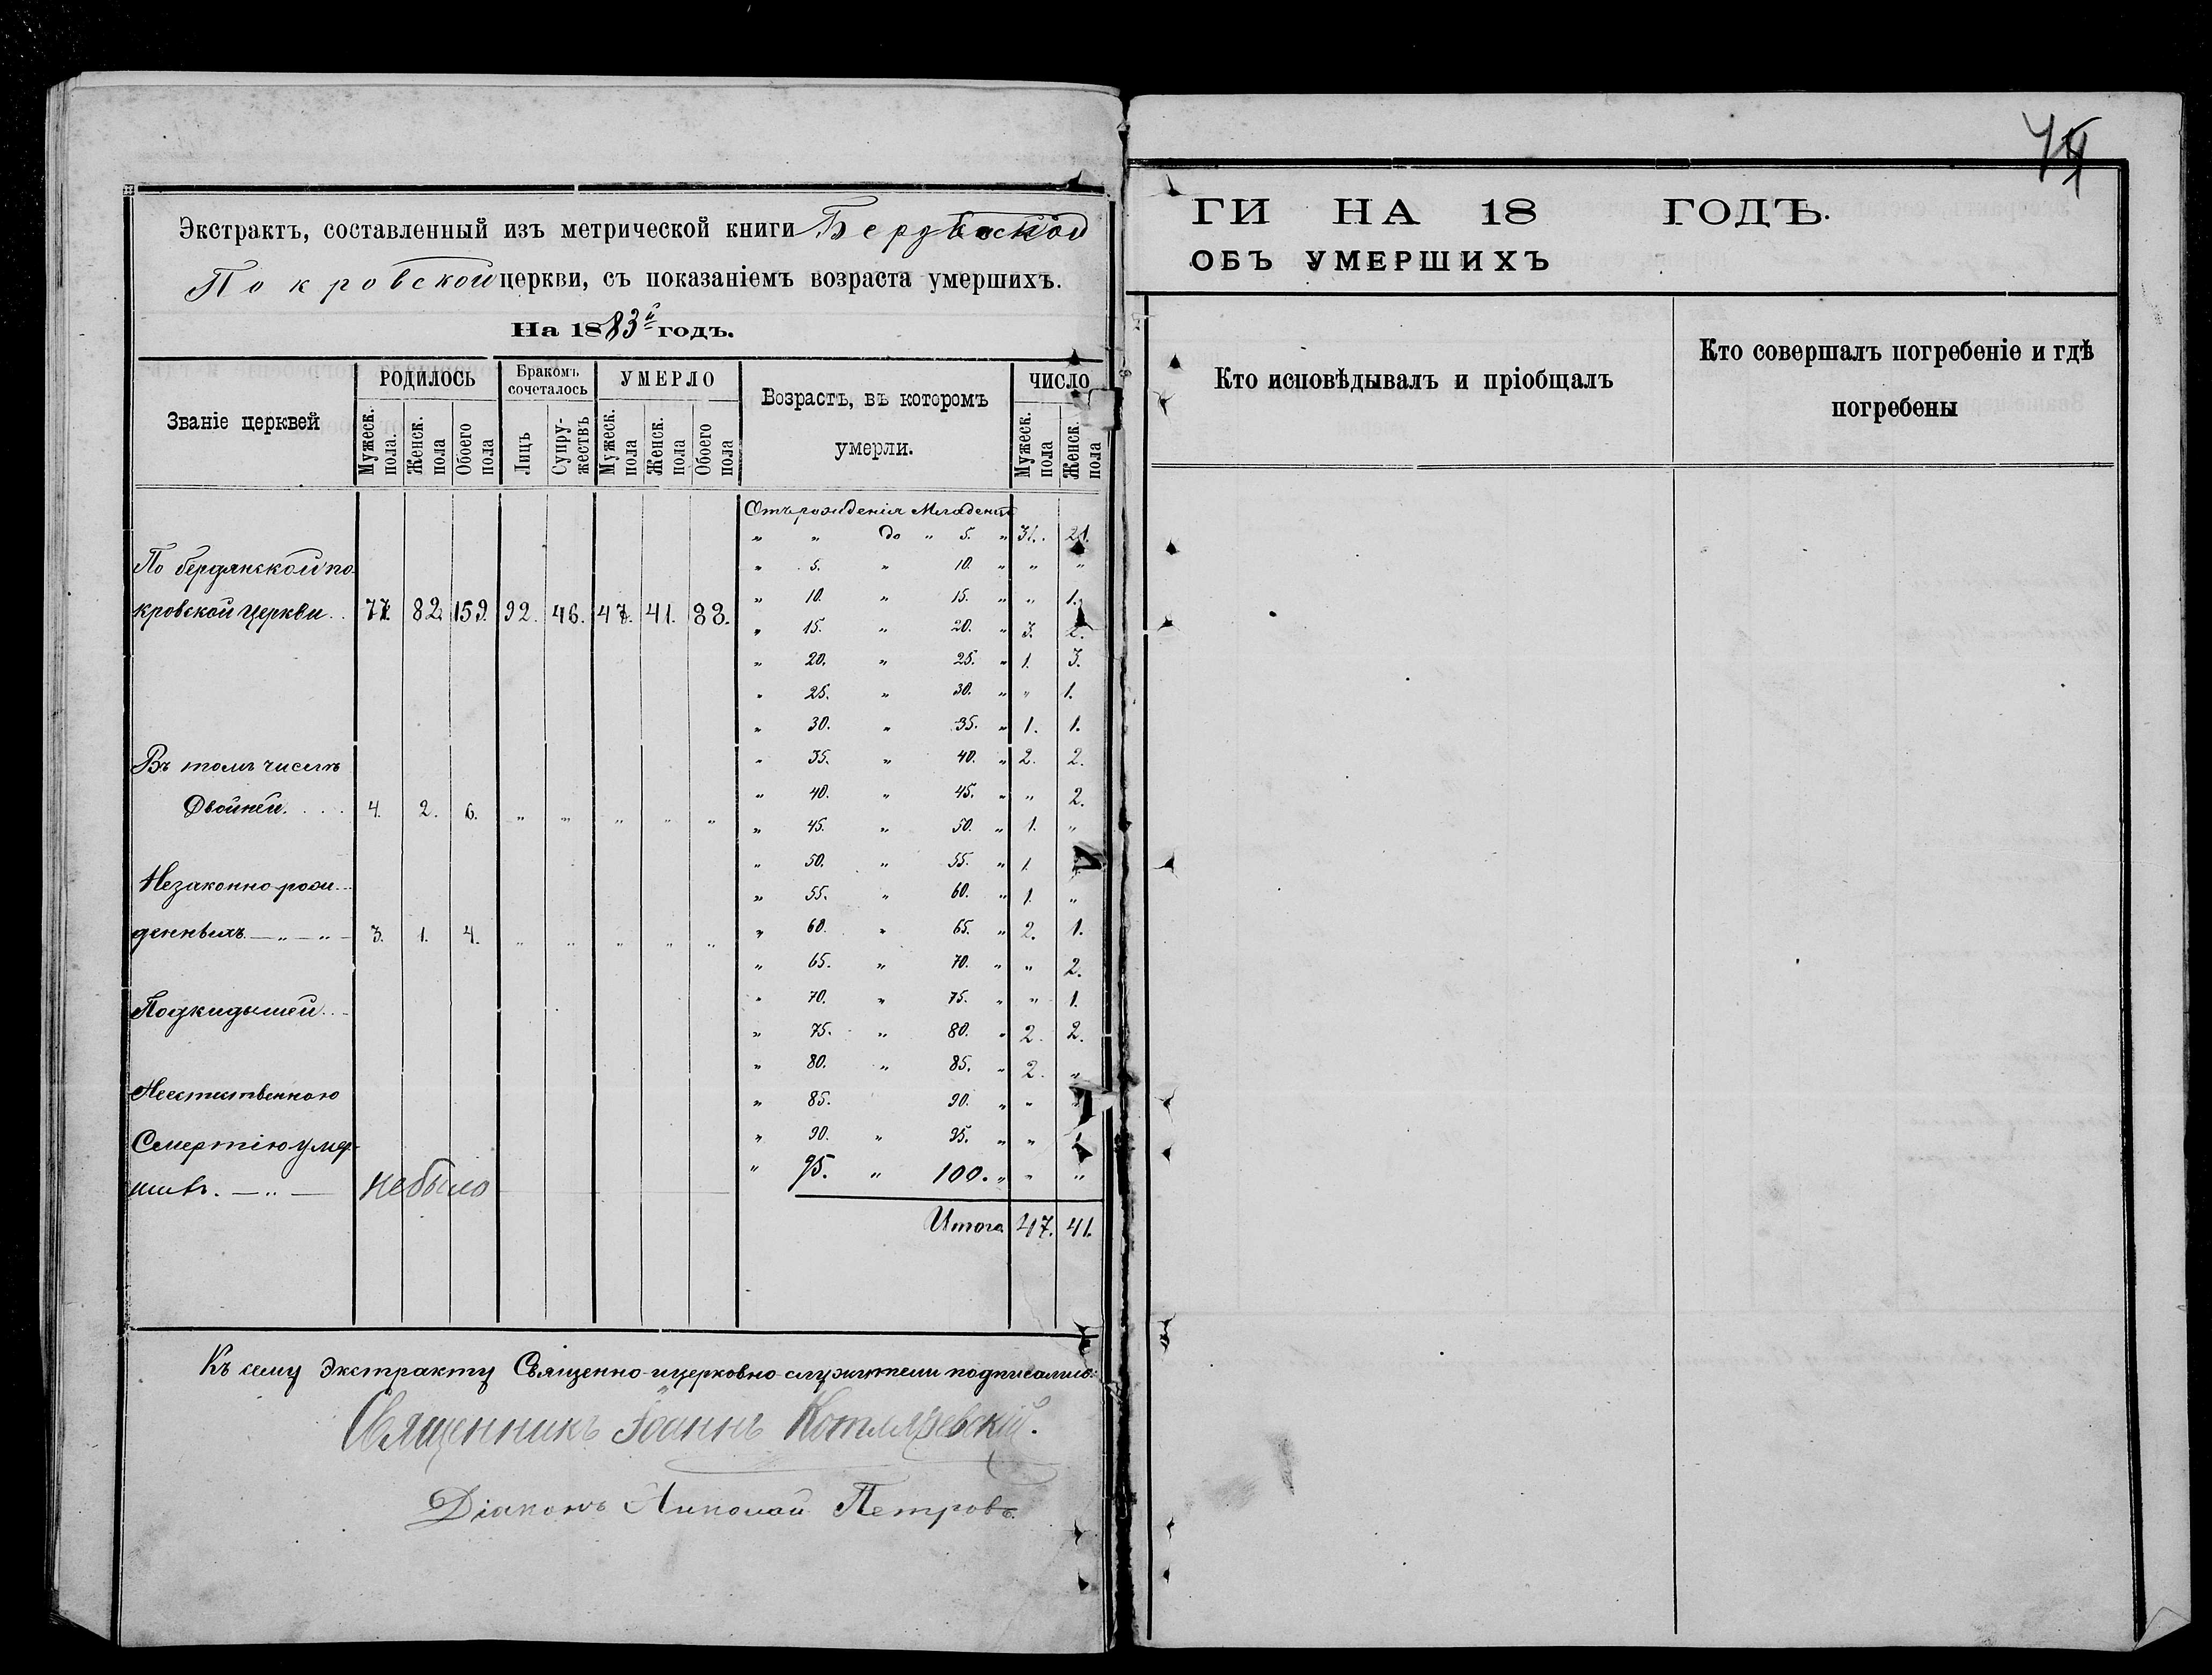 Экстрактъ, составленный изъ метрической книги Бердянской
Покровской церкви, съ показаніемъ возраста умершихъ.
На 1883й годъ.
Званіе церквей
РОДИЛОСЬ
Мужеск. пола.
Женск. пола
Обоего пола
Бракомъ сочеталось
Лицъ
Супружествъ
УМЕРЛО
Мужеск. пола
Женск. пола
Обоего пола
Возрастъ, въ которомъ
умерли.
ЧИСЛО
Мужеск. пола
Женск. пола
По бердянской по-
кровской церкви . . 77. 82. 159. 92. 46. 47. 41. 88.
Въ томъ числѣ
Двойней. . . . 4. 2. 6. „ „ „ „ „
Незаконно рож-
денныхъ — „ — „ — 3. 1. 4. „ „ „ „ „
Подкидышей . . -
Неестественною
Смертію умер-
шихъ. — „ — небыло
Отъ рожденія Младенцъ
„ „ до „ 5. „ 31. 21.
„ 5. „ 10. „ „ „
„ 10. „ 15. „ „ 1.
„ 15. „ 20. „ 3. 2.
„ 20. „ 25. „ 1. 3.
„ 25. „ 30. „ „ 1.
„ 30. „ 35. „ 1. 1.
„ 35. „ 40. „ 2. 2.
„ 40. „ 45. „ „ 2.
„ 45. „ 50. „ 1. „
„ 50. „ 55. „ 1.
„ 55. „ 60. „ 1. „
„ 60. „ 65. „ 2. 1.
„ 65. „ 70. „ „ 2.
„ 70. „ 75. „ „ 1.
„ 75. „ 80. „ 2. 2.
„ 80. „ 85. „ 2. „
„ 85. 90. „ „
„ 90. „ 95. „ „
„ 95. „ 100. „ „ „
Итого 47. 41.
Къ сему Экстракту Священно-ицерковно-служители подписались:
Священникъ Іоаннъ Котляревскій.
Діаконъ Николай Петровъ.
ГИ НА 18 ГОДЪ.
ОБЪ УМЕРШИХЪ
Кто исповѣдывалъ и пріобщалъ
Кто совершалъ погребеніе и гдѣ
погребены